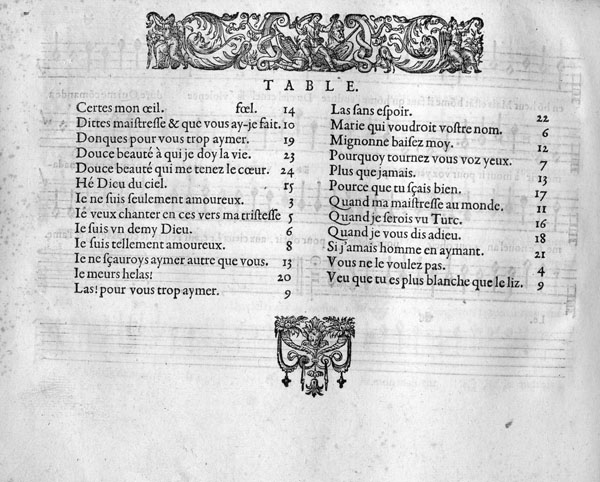 TABLE.
Certes mon œil. fœl. 14
Dittes maistresse & que vous ay-je fait. 10
Donques pour vous trop aymer. 19
Douce beauté à qui je doy la vie. 23
Douce beauté qui me tenez le cœur. 24
Hé Dieu du ciel. 15
Ie ne suis seulement amoureux. 3
Ie veux chanter en ces vers ma tristesse 5
Ie suis vn demy Dieu. 6
Ie suis tellement amoureux. 8
Ie ne sçauroys aymer autre que vous. 13
Ie meurs helas! 20
Las! pour vous trop aymer. 9
Las sans espoir. 22
Marie qui voudroit vostre nom. 6
Mignonne baisez moy. 12
Pourquoy tournez vous voz yeux. 7
Plus que jamais. 13
Pource que tu sçais bien. 17
Quand ma maistresse au monde. 11
Quand je serois vu Turc. 16
Quand je vous dis adieu. 18
Si j'amais homme en aymant. 21
Vous ne le voulez pas. 4
Veu que tu es plus blanche que le liz. 9